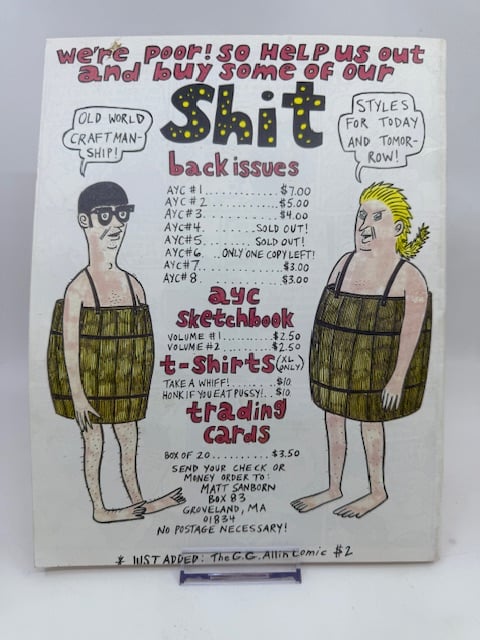 we're poor! so help us out
and buy some of our
Shit
OLD WORLD
CRAFTMAN-
SHIP!
STYLES
FOR TODAY
AND TOMOR-
ROW!
back issues
AYC #1............$7.00
AYC #2............$5.00
AYC #3............$4.00
AYC#4.........SOLD OUT!
AYC#5.........SOLD OUT!
AYC#6...ONLY ONE COPY LEFT!
AYC#7............$3.00
AYC#8............$3.00
ayc
sketchbook
VOLUME #1.........$2.50
VOLUME #2.........$2.50
t-shirts (XL ONLY)
TAKE A WHIFF!........$10.
HONK IF YOU EAT PUSSY!...$10.
trading
cards
BOX OF 20..........$3.50
SEND YOUR CHECK OR
MONEY ORDER TO:
MATT SANBORN
BOX 83
GROVELAND, MA
01834
NO POSTAGE NECESSARY!
* JUST ADDED: The G.G. Allin Comic $2